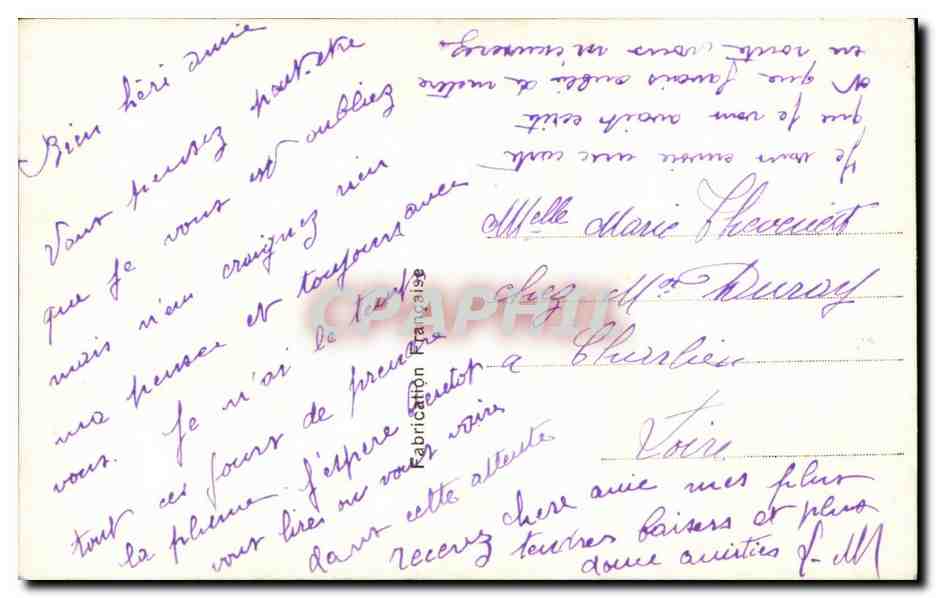 Bien héri amie
Vous pensez peut-etre
que je vous est oubliez
mais n'en craignez rien
ma pensee et toujours avec
vous. Je n'ai le temp
tout ces jours de prendre
la plume. J'espere bentot
vous lires ou vous voire
dans cette attente
recevez chere amie mes plus
tendres baisers et plus
douce amities J-M
Je vous envoie une carte
que je vous avait ecrite
et que j'avais oublié de mettre
en route vous m'excuserez
Melle Marie Thevenet
chez Mr Duray
a Charlieu
Loire
Fabrication Française
CPAPHIL